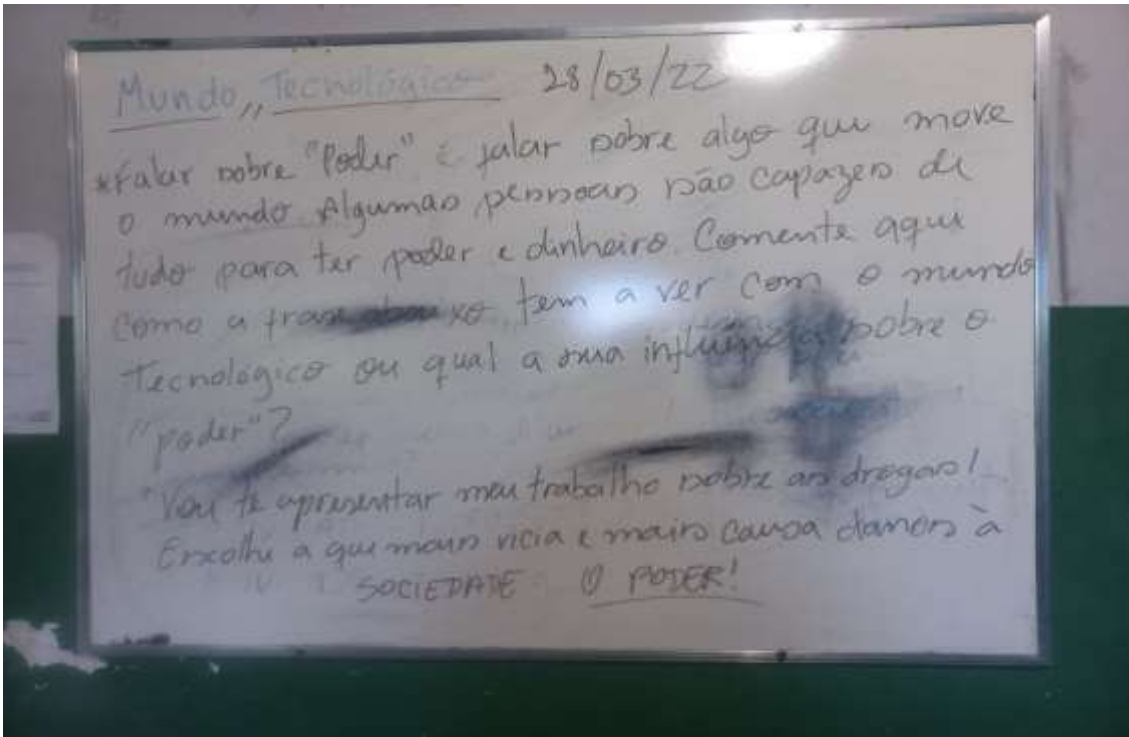 Mundo,, Tecnológico 28/03/22
*Falar sobre "Poder" é falar sobre algo que move
o mundo. Algumas pessoas são capazes de
tudo para ter poder e dinheiro. Comente aqui
como a frase abaixo tem a ver com o mundo
Tecnológico ou qual a sua influência sobre o
"poder"?
"Vou te apresentar meu trabalho sobre as drogas!
Escolhi a que mais vicia e mais causa danos à
SOCIEDADE O PODER!